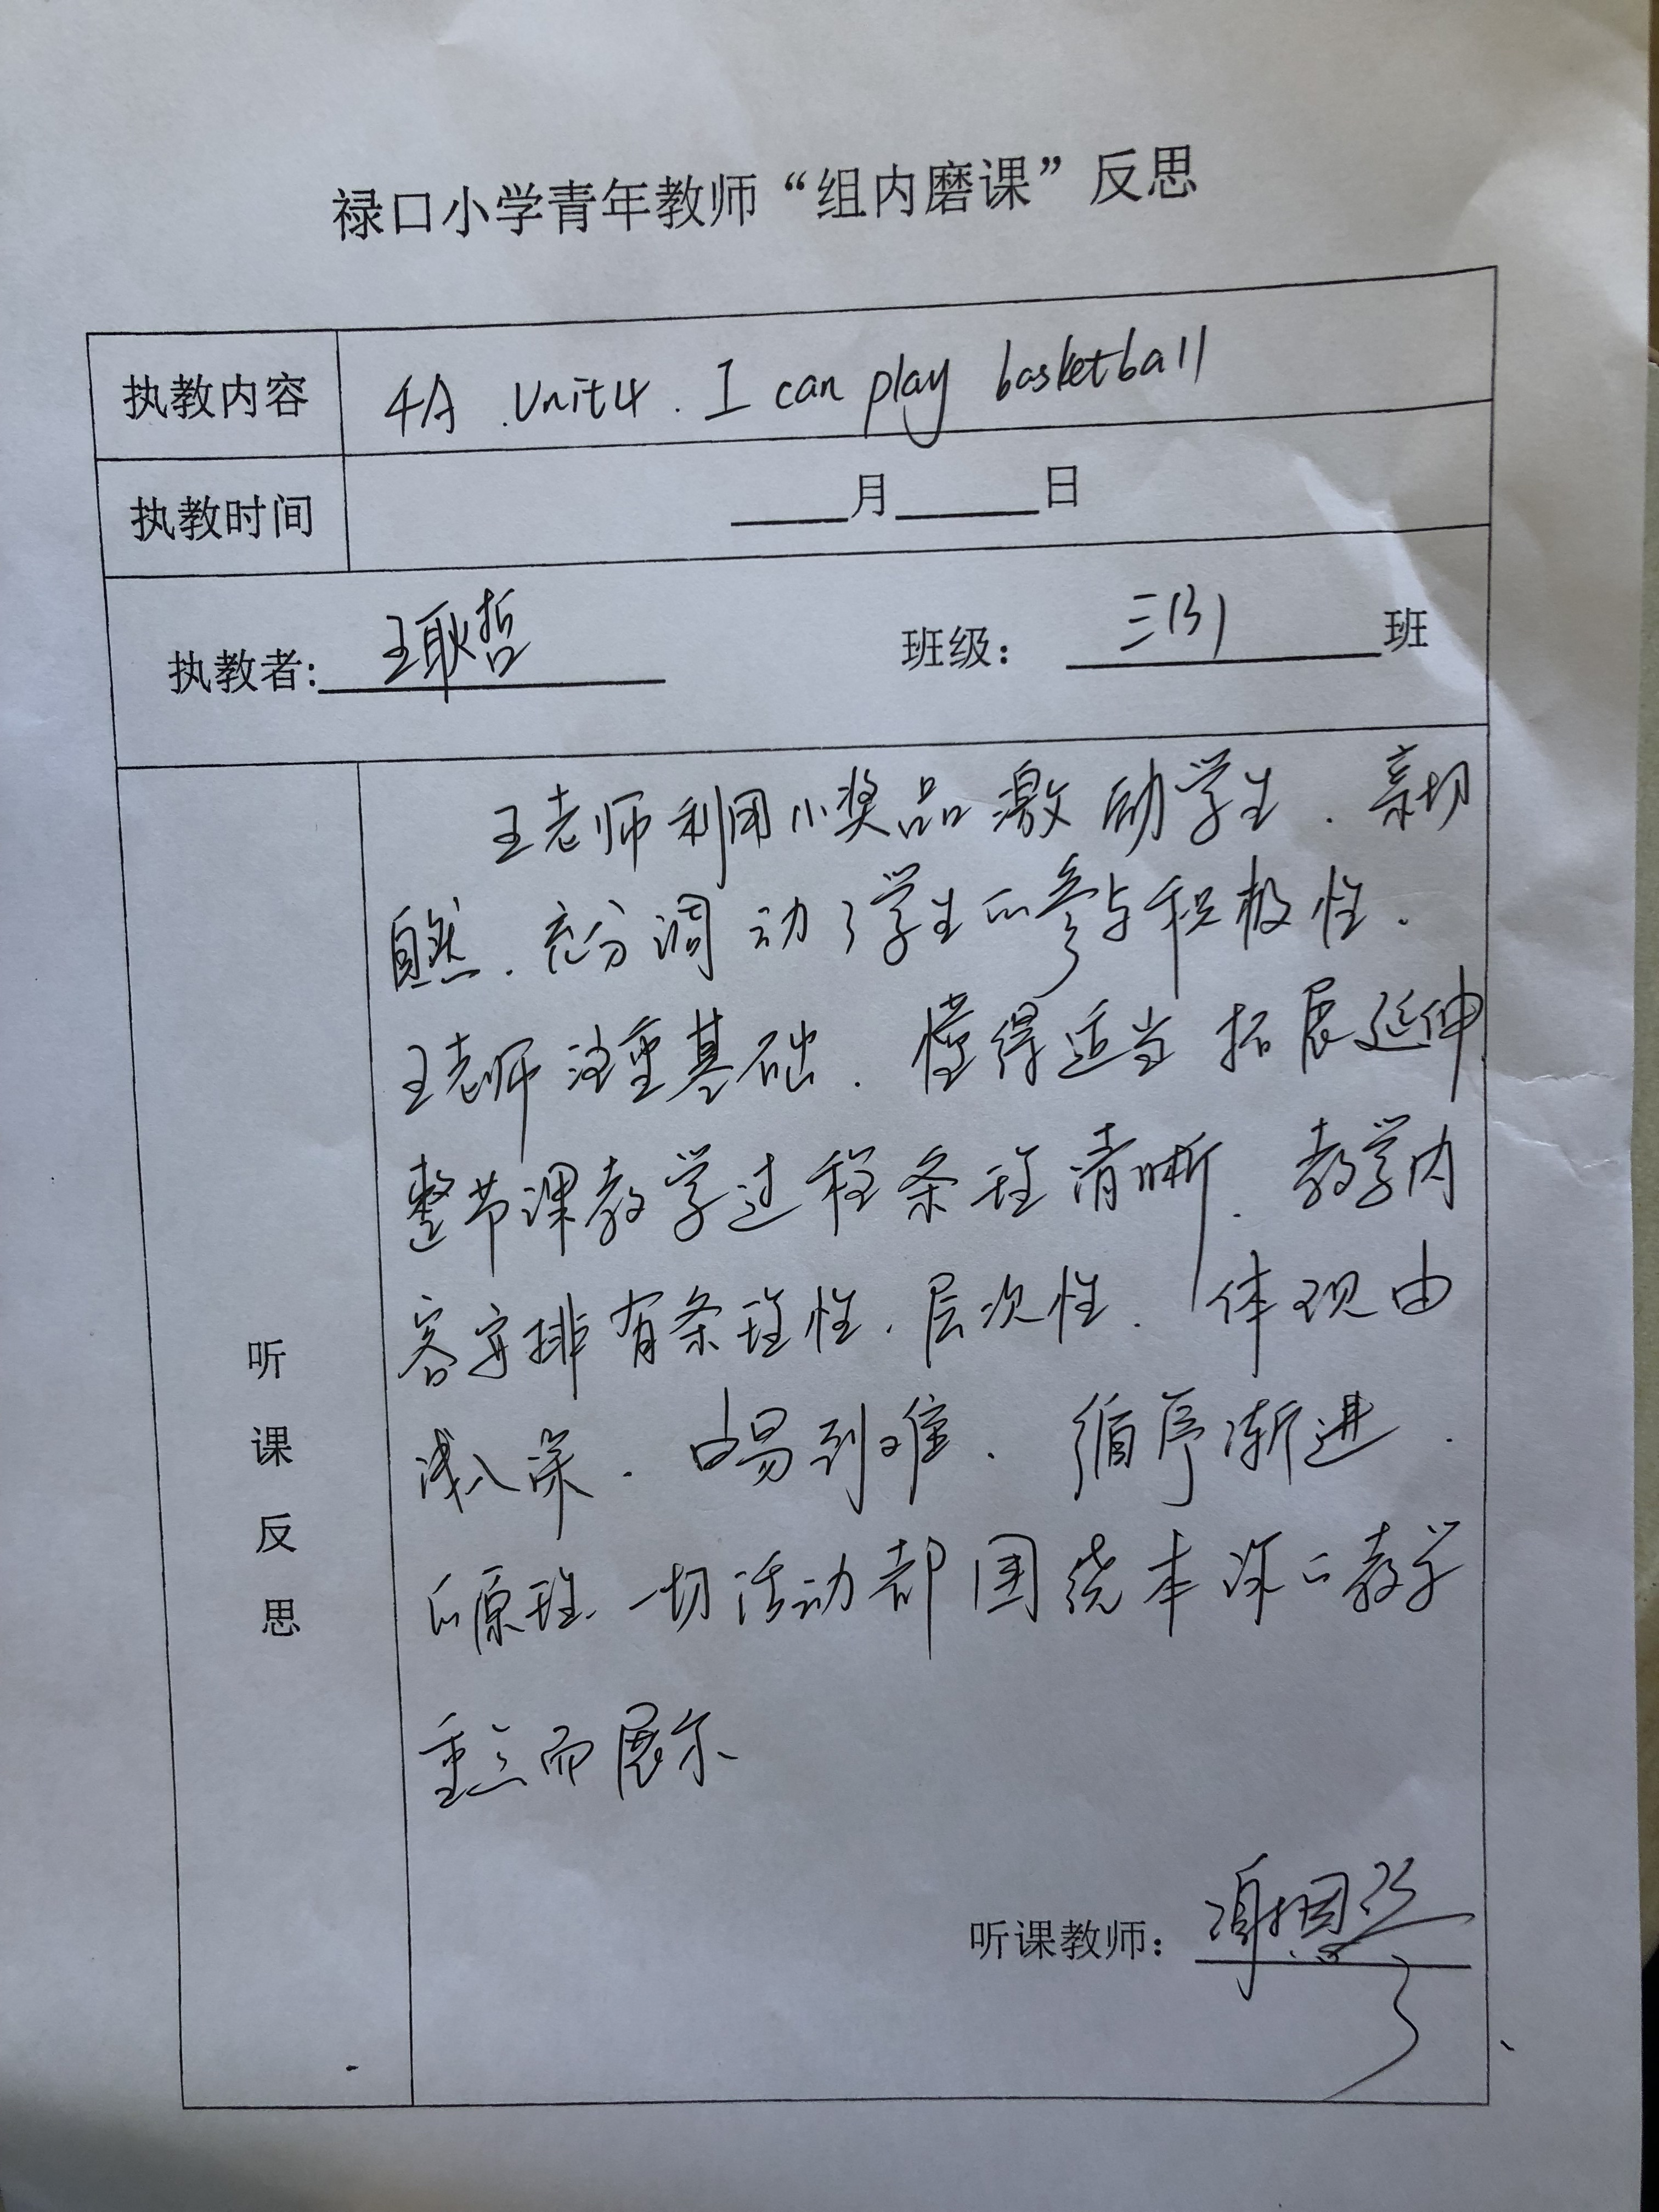 禄口小学青年教师“组内磨课”反思
执教内容
4A .Unit4. I can play basketball
执教时间
月 日
执教者: 王耿哲 班级: 三(3) 班
听课反思
王老师利用小奖品激励学生.亲切
自然.充分调动了学生的参与积极性.
王老师注重基础.懂得适当拓展延伸.
整节课教学过程条理清晰.教学内
容安排有条理性.层次性.体现由
浅入深.由易到难.循序渐进.
的原理.一切活动都围绕本课的教学
重点而展示
听课教师: 谢